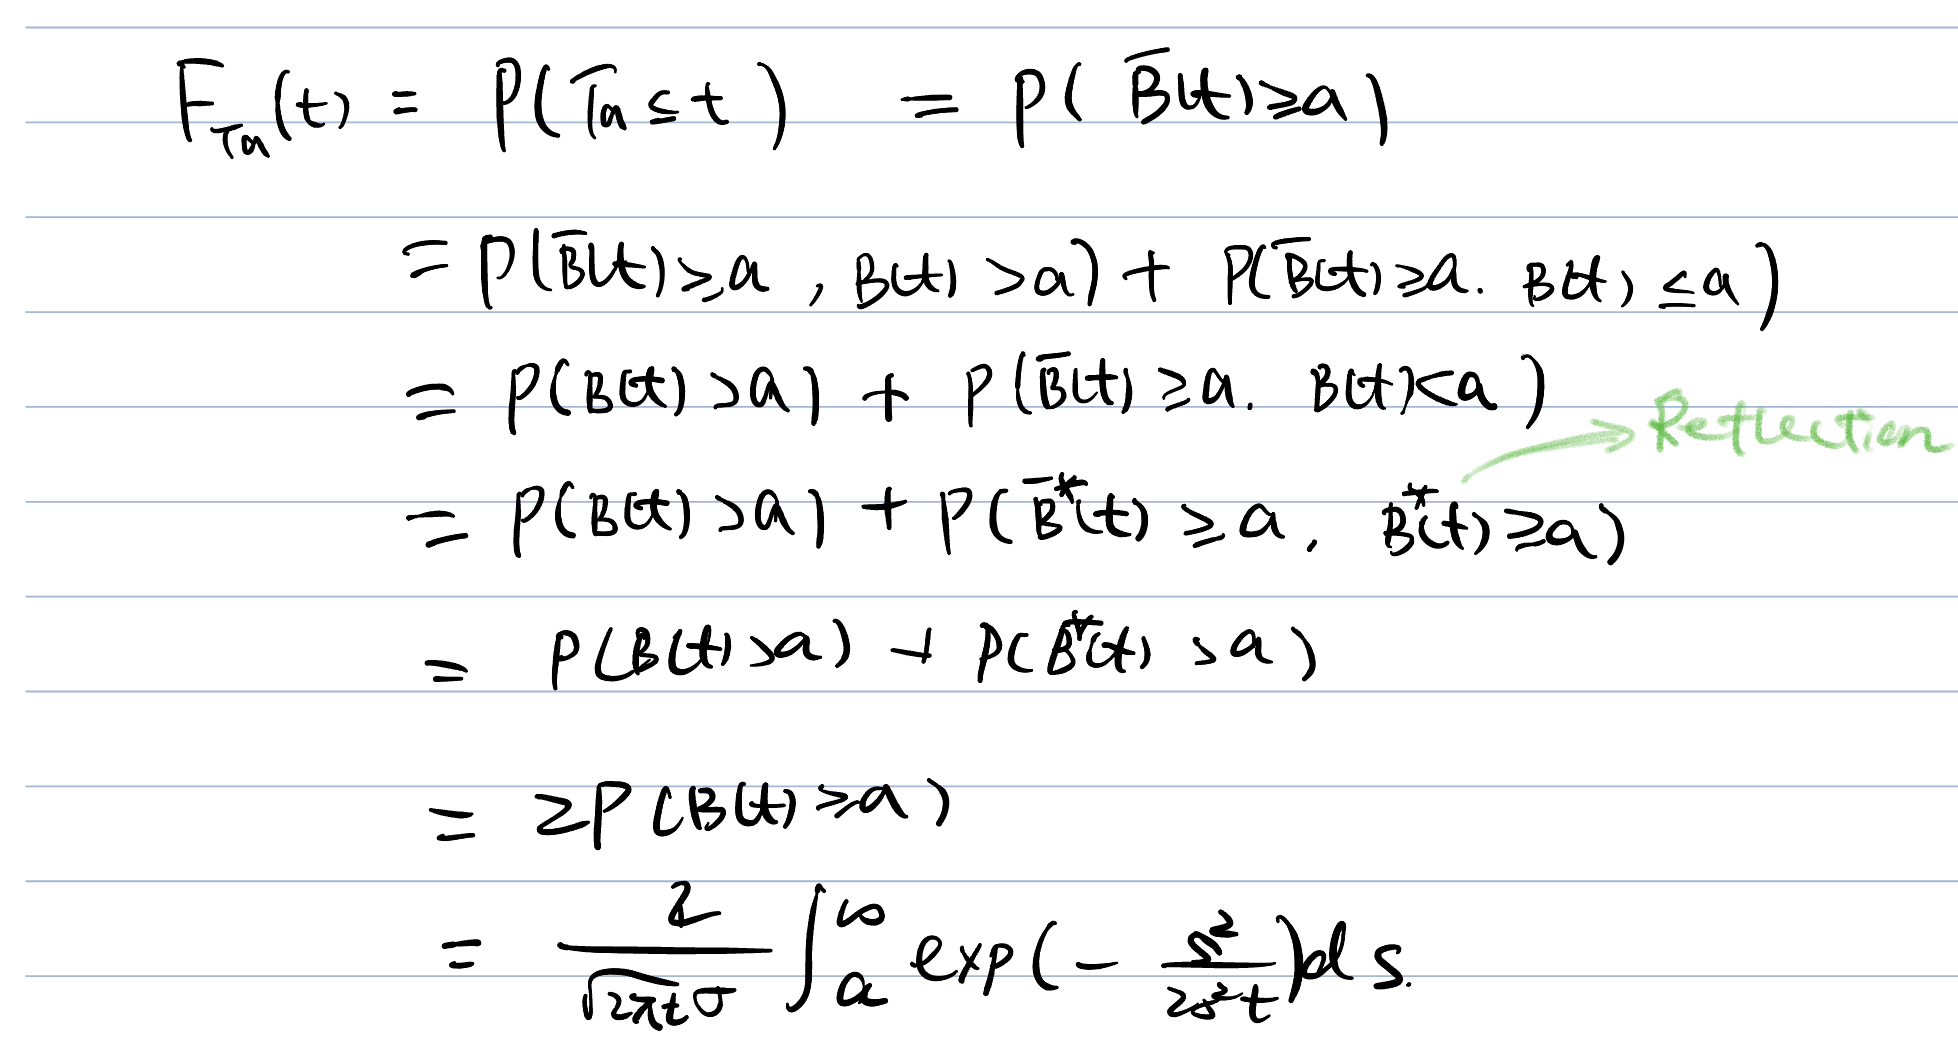 F_{Ta}(t) = P(Ta ≤ t) = P( B̅(t) ≥ a )
= P( B̅(t) ≥ a , B(t) > a ) + P( B̅(t) ≥ a . B(t) ≤ a )
= P(B(t) > a) + P( B̅(t) ≥ a . B(t) < a )
Reflection
= P(B(t) > a) + P( B̅*(t) ≥ a , B*(t) ≥ a )
= P(B(t) > a) + P( B*(t) > a )
= 2P (B(t) ≥ a)
= \frac{2}{\sqrt{2πt}σ} ∫_a^∞ exp(- \frac{s^2}{2s^2t}) ds.